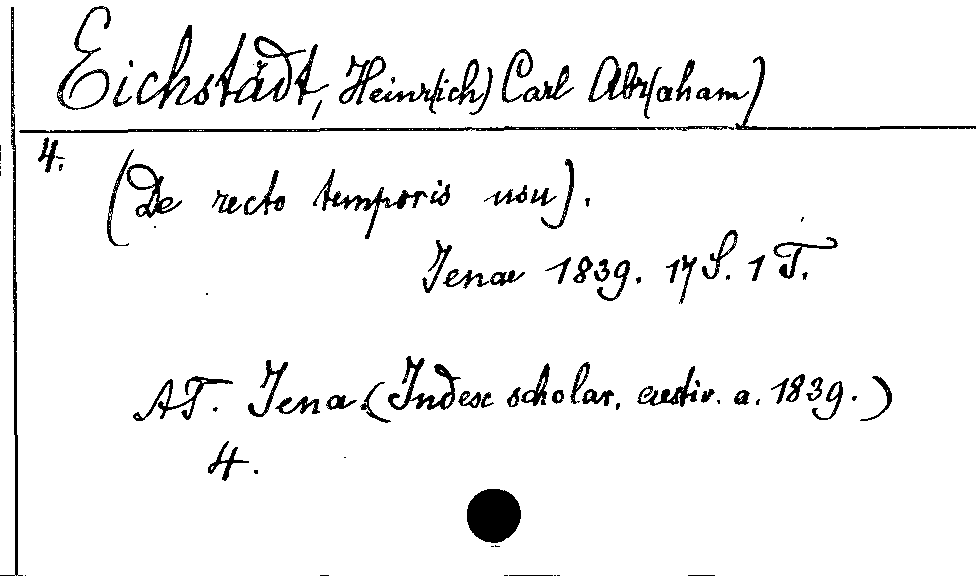 Eichstädt, Heinr(ich) Carl Abr(aham)
4.
(De recto temporis usu).
Jenae 1839. 17 S. 1 T.
AT. Jena. (Index scholar. aestiv. a. 1839.)
4.